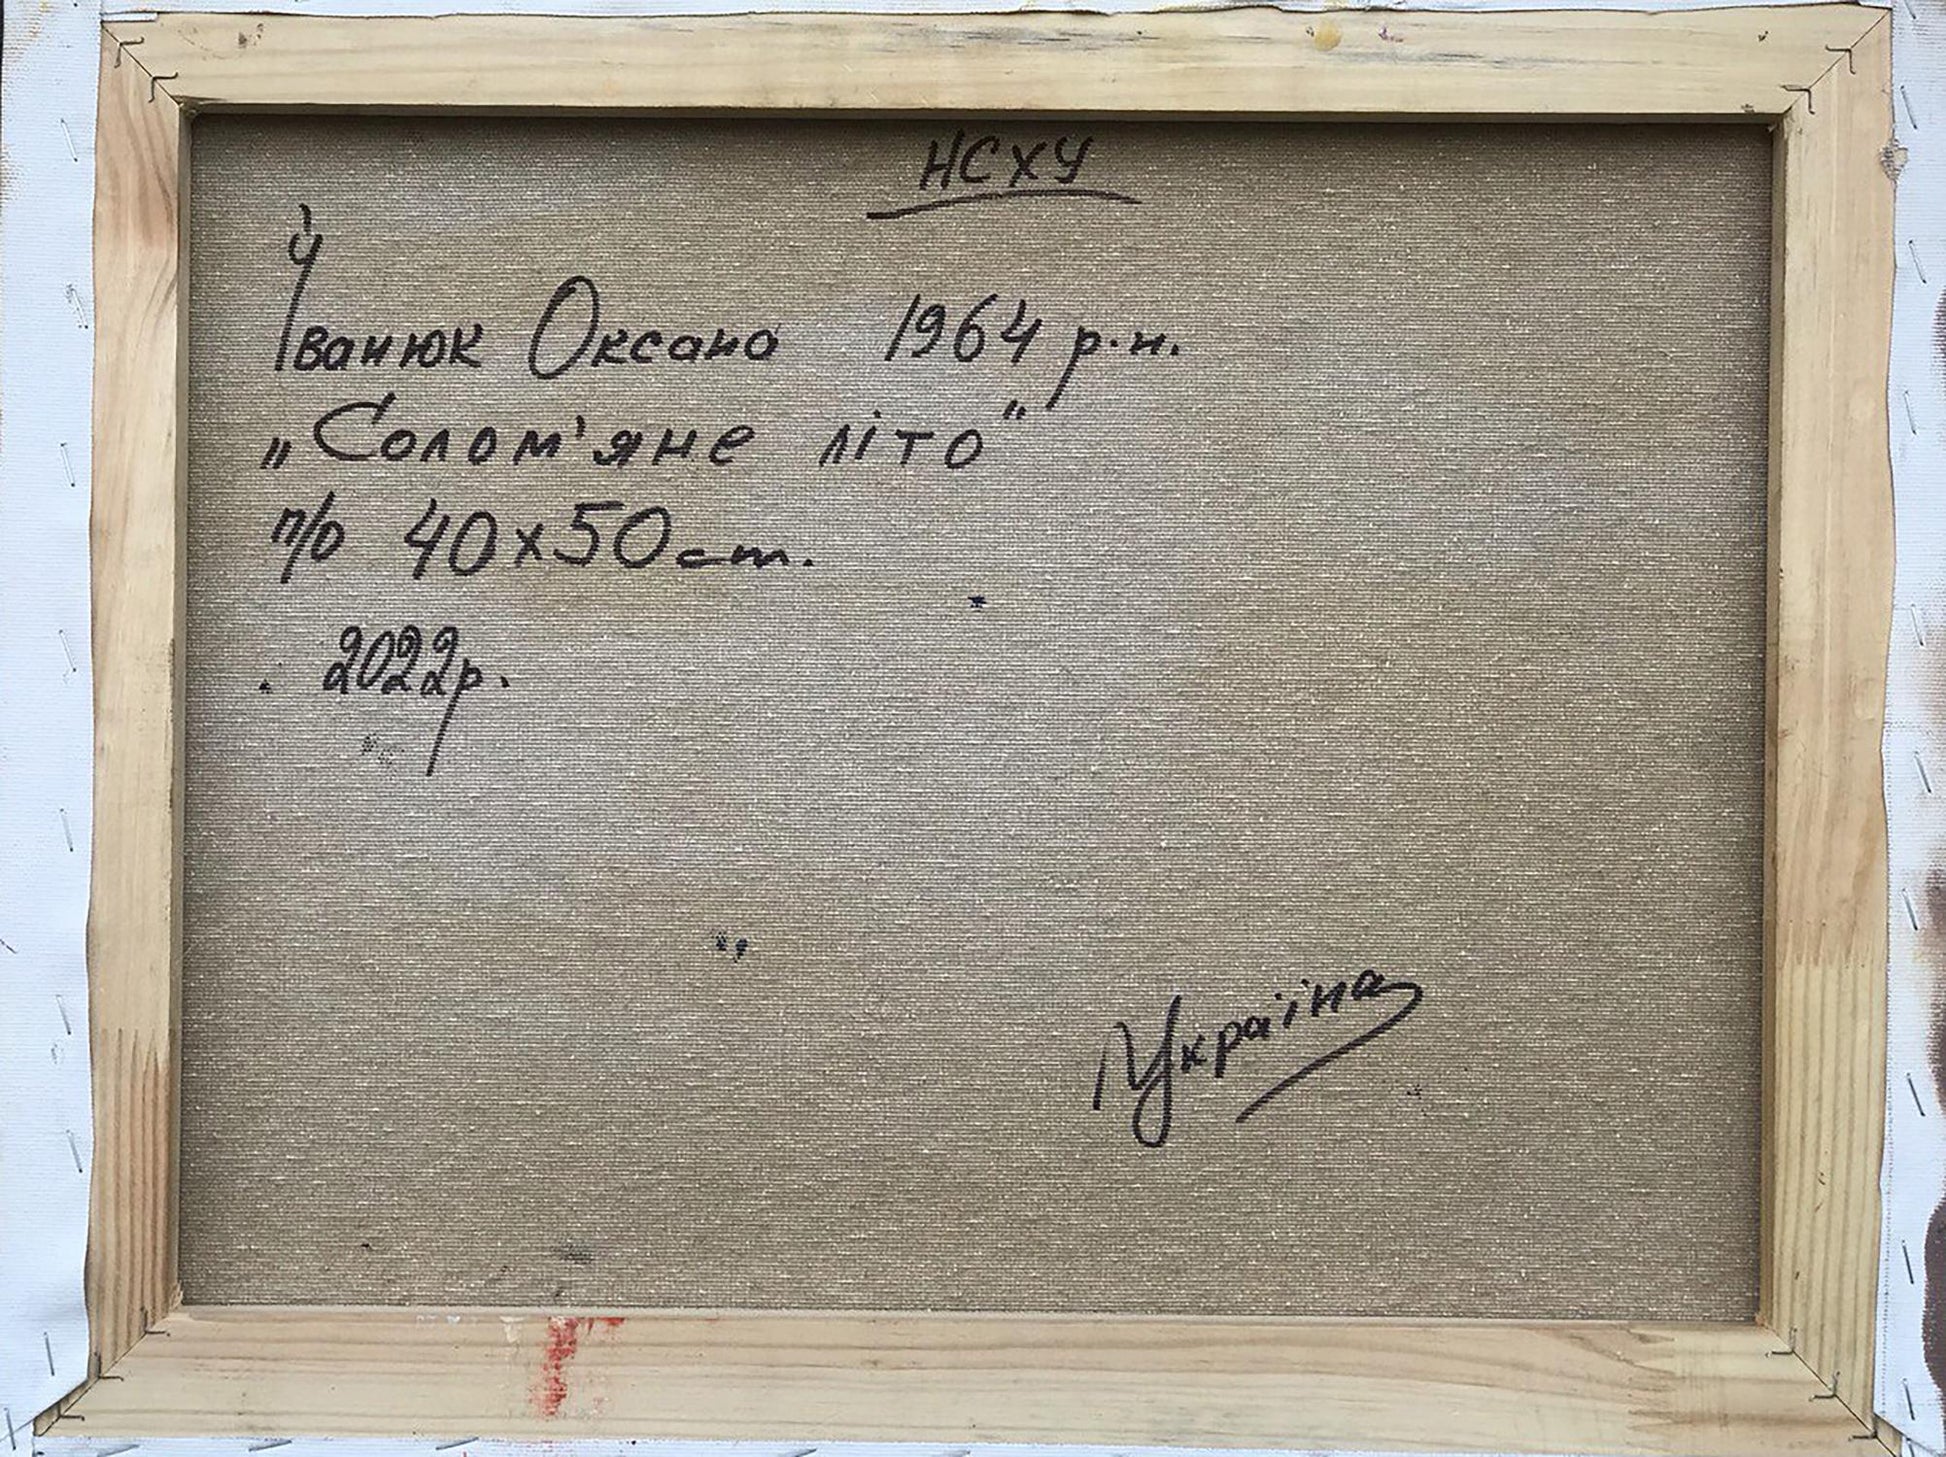 НСХУ
Іванюк Оксана 1964 р.н.
„Солом'яне літо"
п/о 40х50 cm.
2022р.
Україна